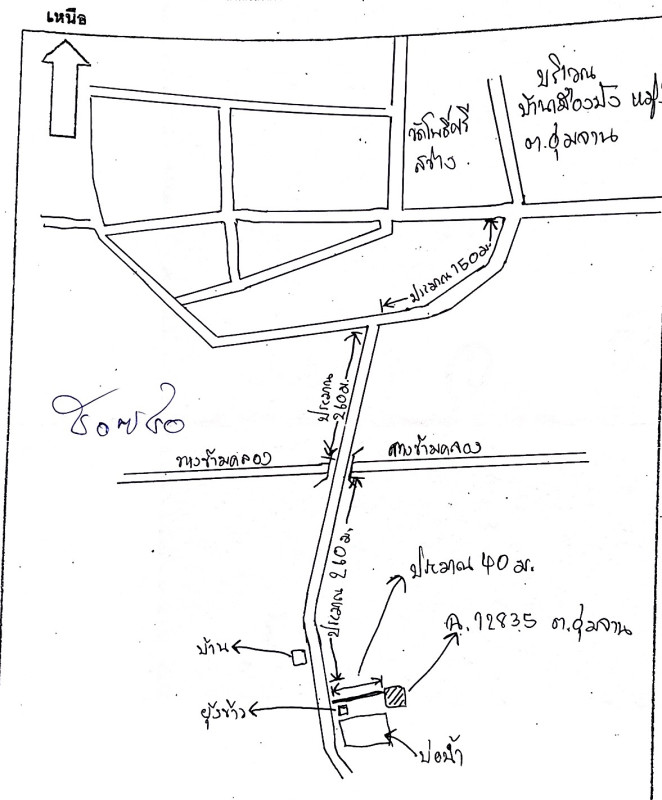 เหนือ
บริเวณ
บ้านเมืองปัง หมู่
ต.ชุมจาน
วัดโพธิ์ศรี
สว่าง
ประมาณ 150 ม.
ประมาณ
260 ม.
ทางข้ามคลอง
ทางข้ามคลอง
ประมาณ 260 ม.
ประมาณ 40 ม.
ฉ. 12835 ต.ชุมจาน
บ้าน
ยุ้งข้าว
บ่อน้ำ